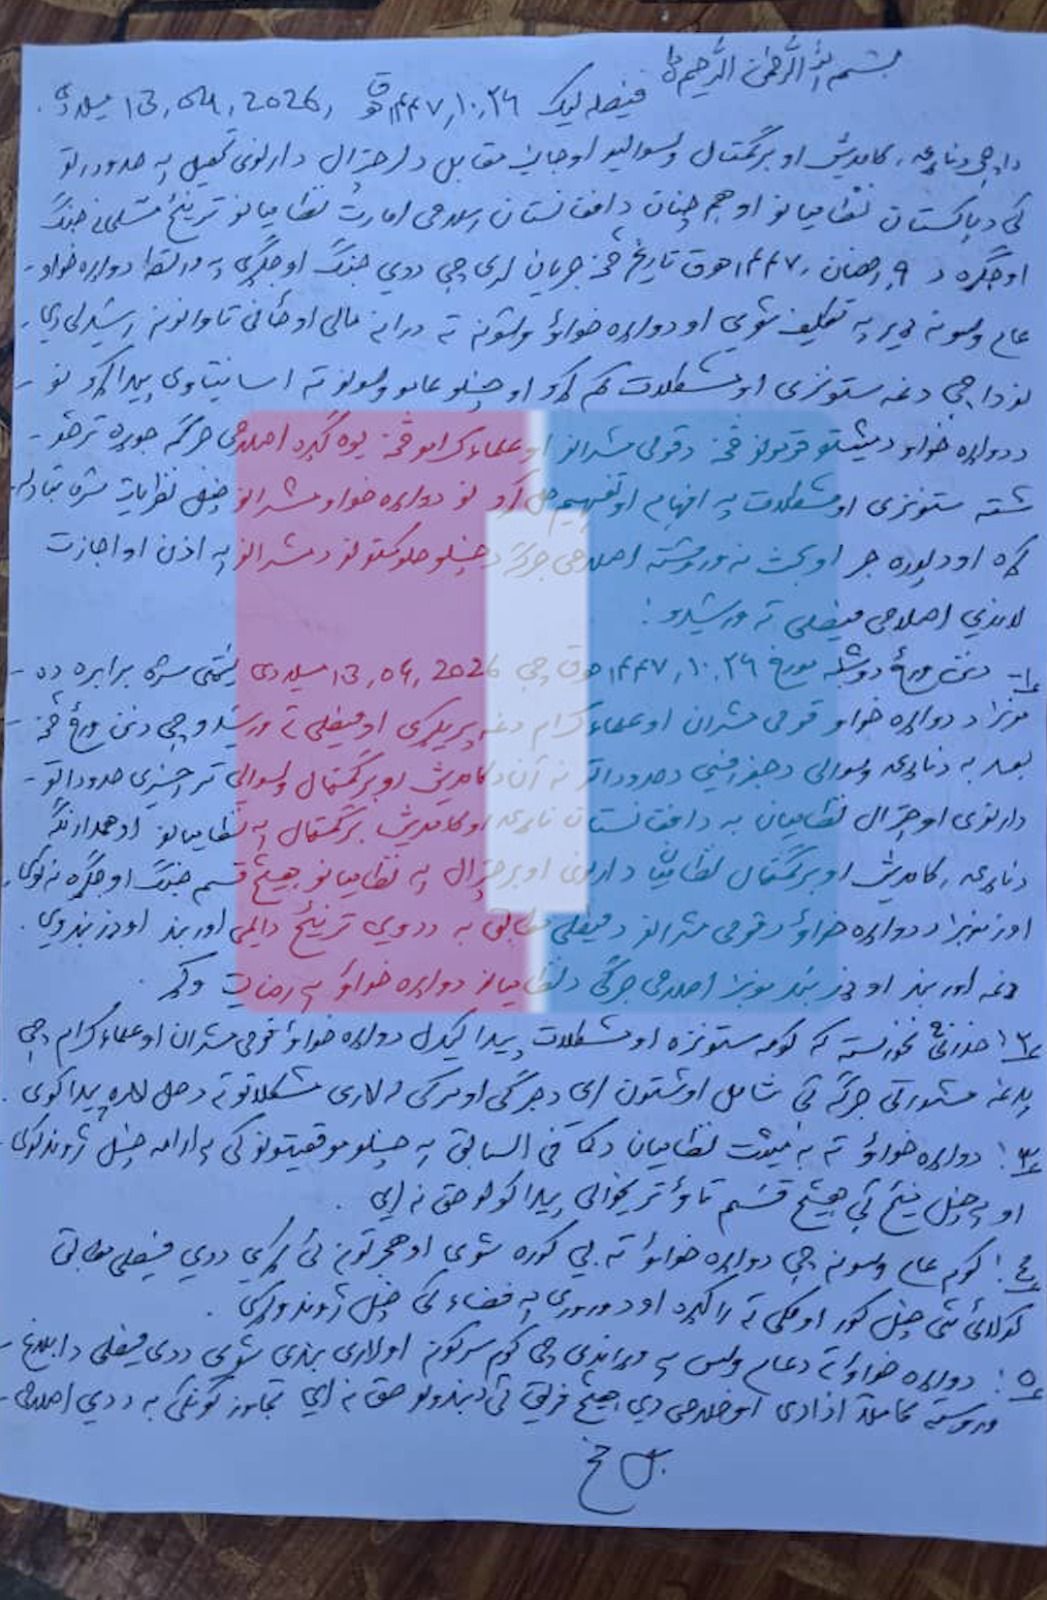 بسم الله الرحمن الرحیم
فیصله لیک ۱۴۴۷,۱۰,۲۶ هـ ق , 13,04,2026 میلادي
دا چې د ناړۍ، کامدیش او برګمټال ولسوالیو او جانب مقابل د لرچترال دارنوی کمیل په حدودو
کې د پاکستان نظامیانو او همچنان د افغانستان اسلامي امارت نظامیانو ترمنځ مسلحانه جنګ
او جګړه د ۹ رمضان ۱۴۴۷ هـ ق تاریخ څخه جریان لري چې ددې جنګ او جګړې په واسطه دواړه خواو
عام ولسونه ډیر په تکلیف شوي او دواړه خواؤ ولسونه ته درانه مالي او ځاني تاوانونه رسیدلي دي
نو دا چې دغه ستونزې او مشکلات کم کړو او خپلو عامو ولسونو ته اسانتیاوې پیدا کړو نو
د دواړه خواو د میشتو قومونو څخه د قومي مشرانو او علماء کرامو څخه یوه ګډه اصلاحي جرګه جوړه ترڅو
شته ستونزې او مشکلات په افهام او تفهیم حل کړو نو دواړه خواو مشرانو خپل نظریات سره تبادله
کړه او د اوږده جر او بحث نه وروسته اصلاحي جرګه د خپلو حکومتونو د مشرانو په اذن او اجازت
لاندې اصلاحي فیصلې ته ورسیدو:
۱- د نن ورځ دوشنبه مورخ ۱۴۴۷,۱۰,۲۶ هـ ق چې 13,04,2026 میلادي نیټې سره برابره ده
مونږ د دواړه خواو قومي مشران او علماء کرام دغه پریکړې او فیصلې ته ورسیدو چې د نن ورځ څخه
بعد به د ناړۍ ولسوالي د جغرافیې د حدوداتو نه آن د کامدیش او برګمټال ولسوالي تر اخیري حدوداتو
دارنوی او چترال نظامیان به د افغانستان ناړۍ او کامدیش برګمټال په نظامیانو او همدارنګه
د ناړۍ، کامدیش او برګمټال نظامیان د ارنوی او بر چترال په نظامیانو هیڅ قسم جنګ او جګړه نه کوي
او زمونږ د دواړه خواؤ د قومي مشرانو د فیصلې مطابق به د دوي ترمنځ دایمي اوربند او ډزبندوي.
دغه اوربند او ډزبند مونږ اصلاحي جرګې د نظامیانو دواړه خواؤ په رضایت وکړ.
۲: خدای مه کړه که کومه ستونزه او مشکلات پیدا کیدل دواړه خواؤ قومي مشران او علماء کرام چې
پدغه مشورتي جرګه کې شامل او شتون لري د جرګې او مرکې له لارې مشکلاتو ته د حل لاره پیدا کوي.
۳: دواړه خواؤ ته به میشت نظامیان کما فی السابق په خپلو موقعیتونو کې په ارامه خپل ژوند کوي
او په خپل مینځ کې هیڅ قسم تاؤ تریخوالي پیدا کولو حق نه لري.
۴: کوم عام ولسونه چې دواړه خواؤ ته بې کوره شوي او هجرتونه ئې کړي ددې فیصلې مطابق
کولائ شي خپل کور او کلي ته راګډه او د ورورۍ په فضاء کې خپل ژوند وکړي.
۵: دواړه خواؤ ته د عام ولس په وړاندې چې کوم سرکونه او لارې بندې شوي ددې فیصلې د ابلاغ
وروسته کاملا ازادي او خلاصي دي هیڅ فریق ئې د بندولو حق نه لري تجاوز کونکي به د دې اصلاحي
بل مخ